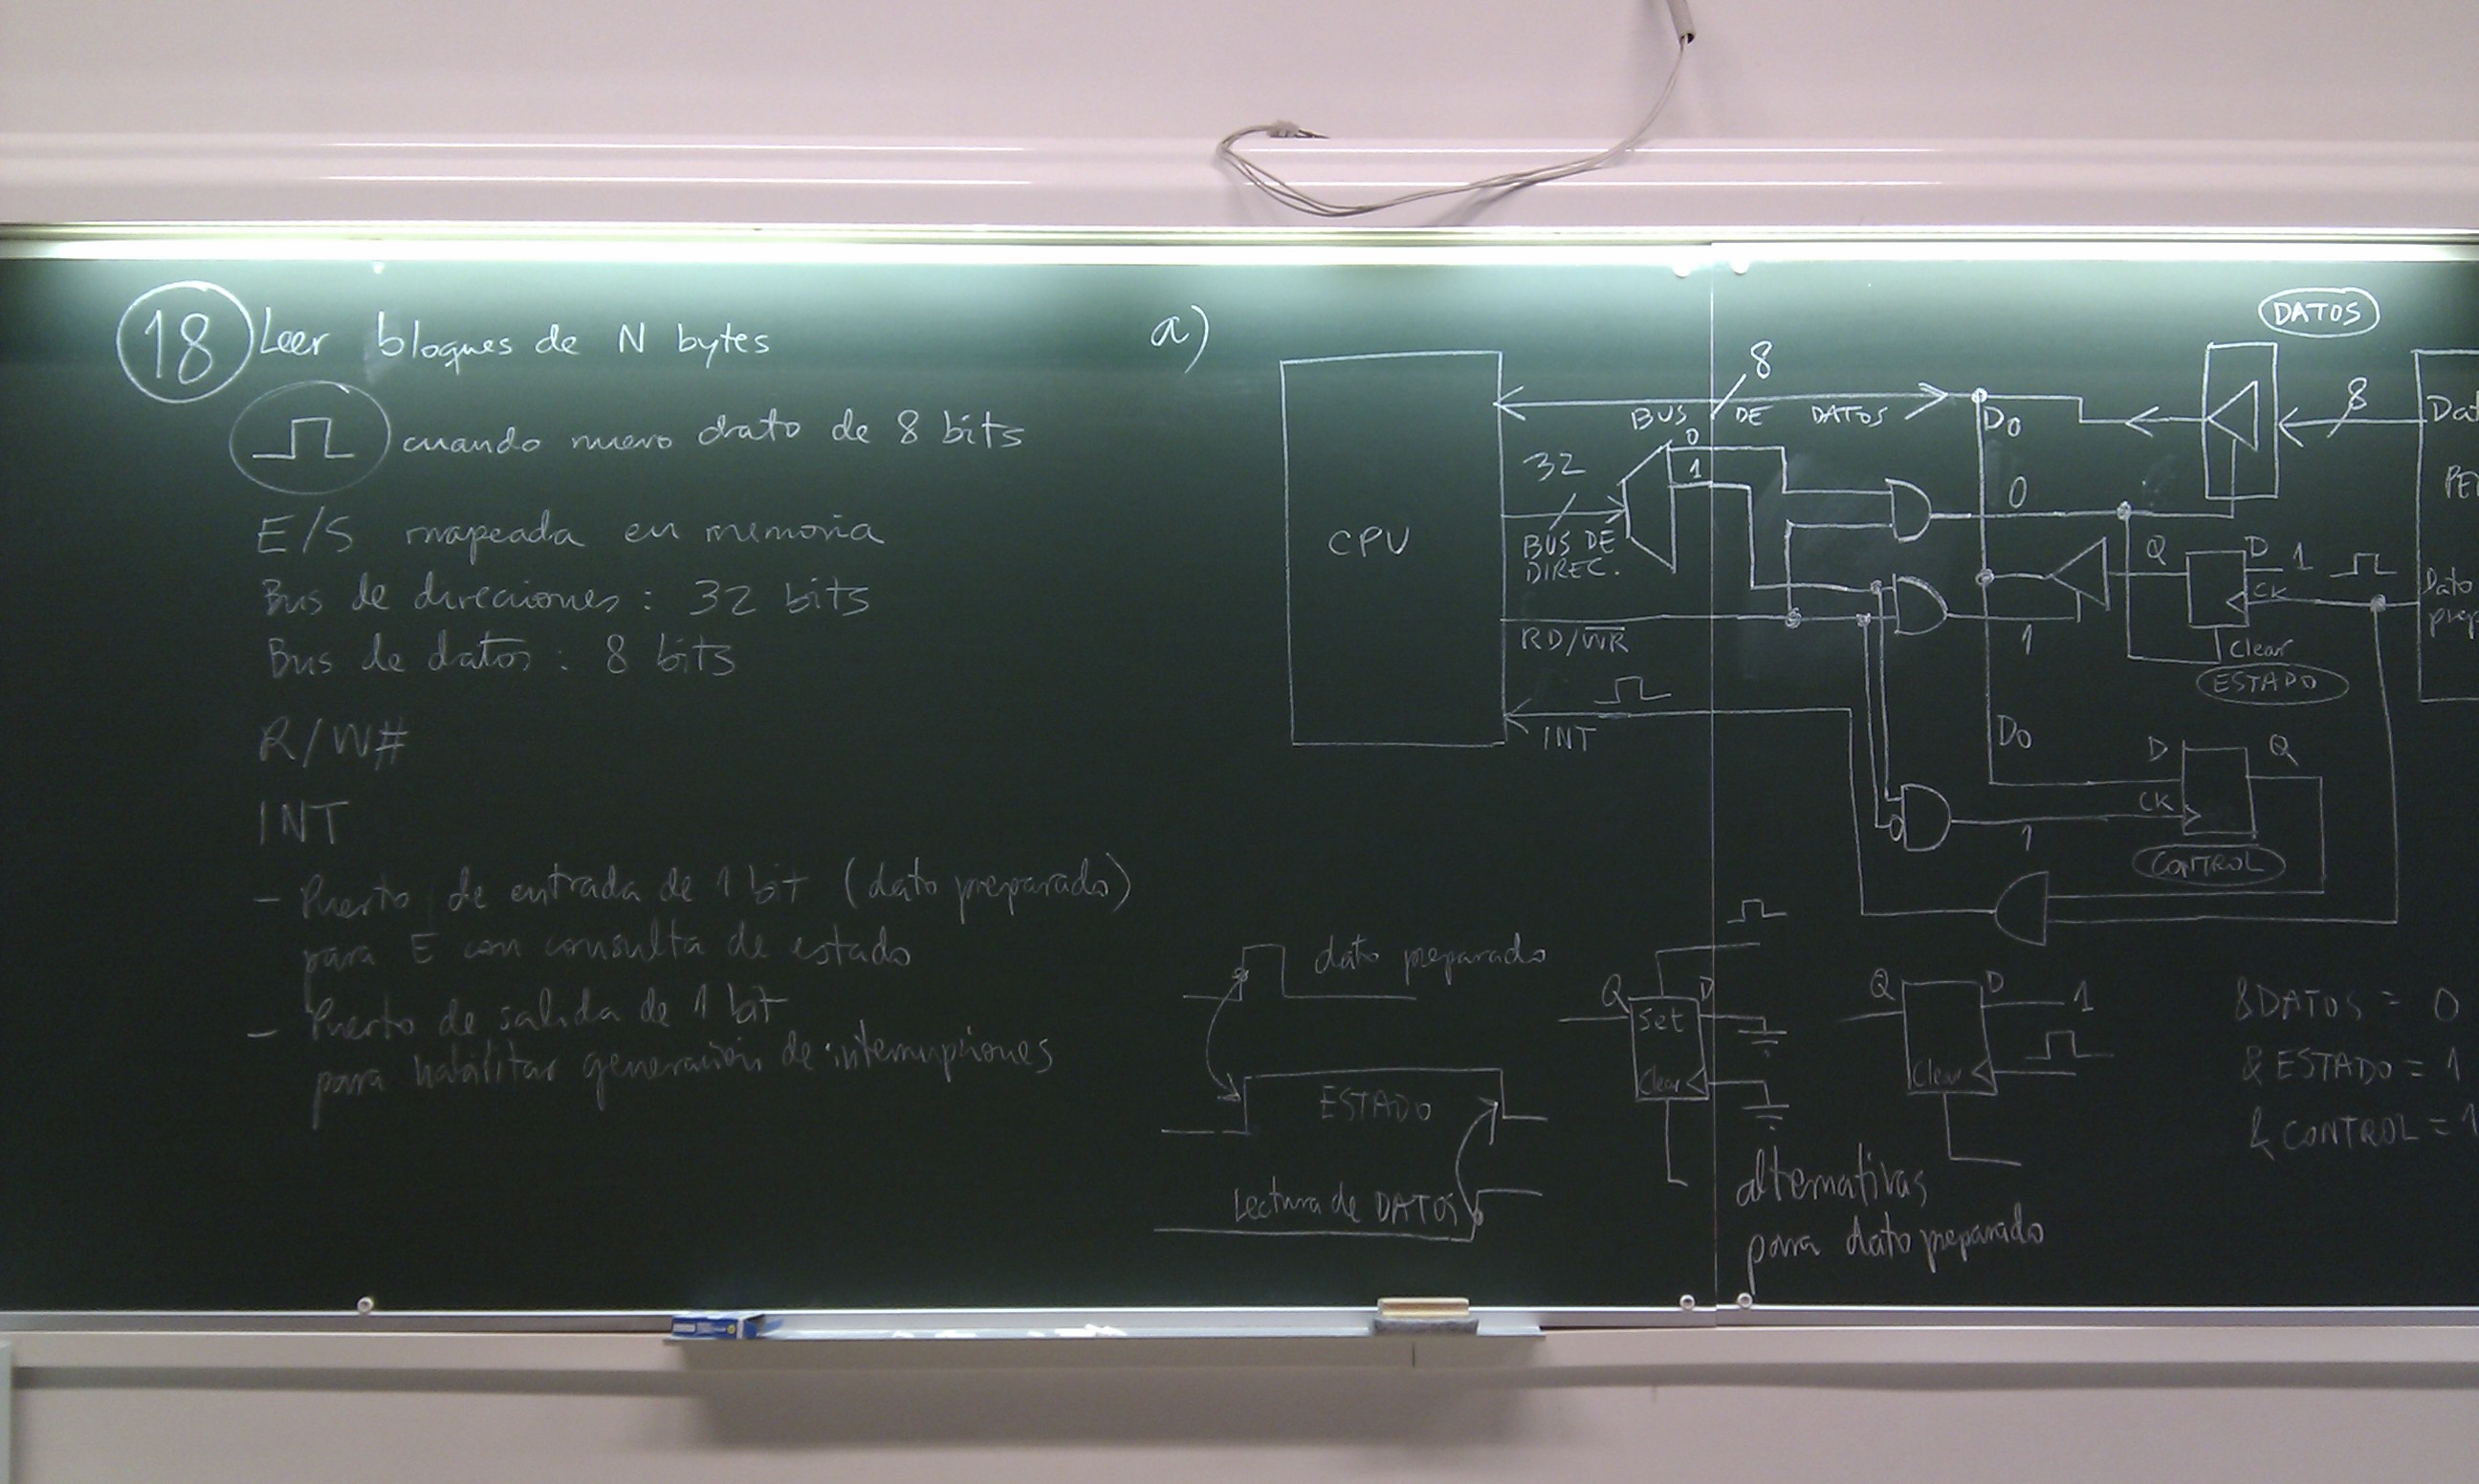 18 Leer bloques de N bytes
cuando nuevo dato de 8 bits
E/S mapeada en memoria
Bus de direciones : 32 bits
Bus de datos : 8 bits
R/W#
INT
- Puerto de entrada de 1 bit (dato preparado)
para E con consulta de estado
- Puerto de salida de 1 bit
para habilitar generación de interrupciones
a)
CPU
8
BUS DE DATOS
32
BUS DE
DIREC.
0
1
RD/WR
INT
DATOS
D0
8
Dat
PE
0
Q
D
1
CK
Clear
ESTADO
Dato
prep
1
D0
D
Q
CK
1
CONTROL
dato preparado
ESTADO
Lectura de DATOS
Q
D
Set
Clear
Q
D
1
Clear
alternativas
para dato preparado
&DATOS = 0
& ESTADO = 1
& CONTROL = 1